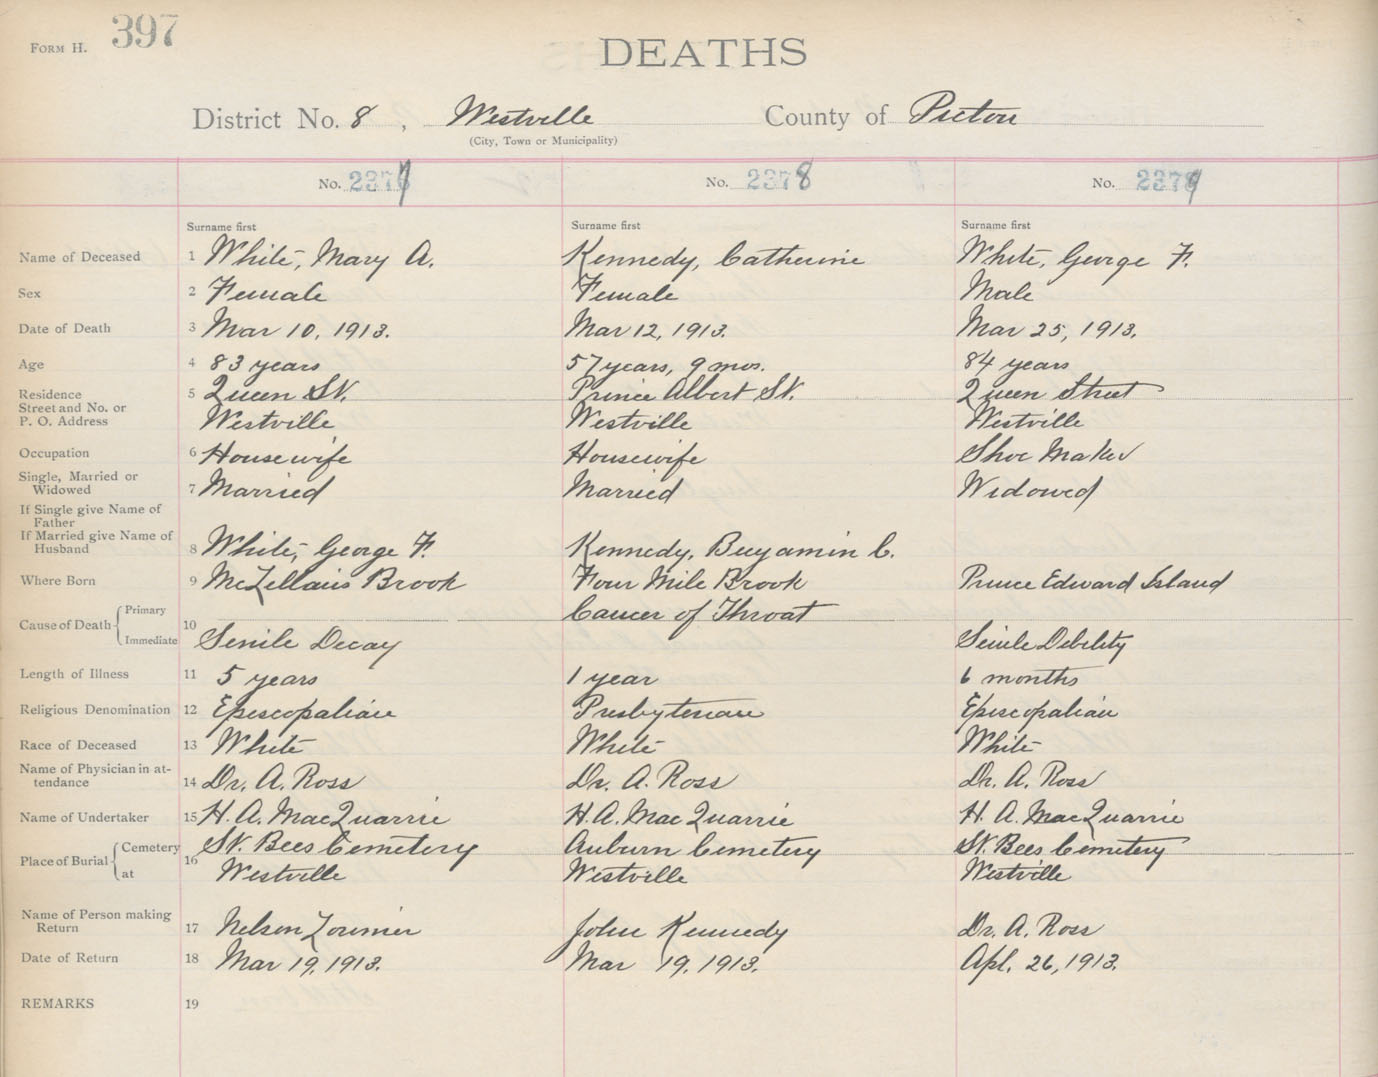 FORM H. 397
DEATHS
District No. 8, Westville County of Pictou
(City, Town or Municipality)
No. 2377 No. 2378 No. 2379
Surname first Surname first Surname first
Name of Deceased 1 White, Mary A. Kennedy, Catherine White, George F.
Sex 2 Female Female Male
Date of Death 3 Mar 10, 1913. Mar 12, 1913. Mar 25, 1913.
Age 4 83 years 57 years, 9 mos. 84 years
Residence 5 Queen St. Prince Albert St. Queen Street
Street and No. or
P. O. Address Westville Westville Westville
Occupation 6 Housewife Housewife Shoe Maker
Single, Married or
Widowed 7 Married Married Widowed
If Single give Name of
Father
If Married give Name of
Husband 8 White, George F. Kennedy, Benjamin C.
Where Born 9 McLellans Brook Four Mile Brook Prince Edward Island
Primary Cancer of Throat
Cause of Death 10
Immediate Senile Decay Senile Debility
Length of Illness 11 5 years 1 year 6 months
Religious Denomination 12 Episcopalian Presbyterian Episcopalian
Race of Deceased 13 White White White
Name of Physician in at-
tendance 14 Dr. A. Ross Dr. A. Ross Dr. A. Ross
Name of Undertaker 15 H. A. MacQuarrie H. A. MacQuarrie H. A. MacQuarrie
Cemetery St. Bees Cemetery Auburn Cemetery St. Bees Cemetery
Place of Burial 16
at Westville Westville Westville
Name of Person making
Return 17 Nelson Lorimer John Kennedy Dr. A. Ross
Date of Return 18 Mar 19, 1913. Mar 19, 1913. Apl. 26, 1913.
REMARKS 19